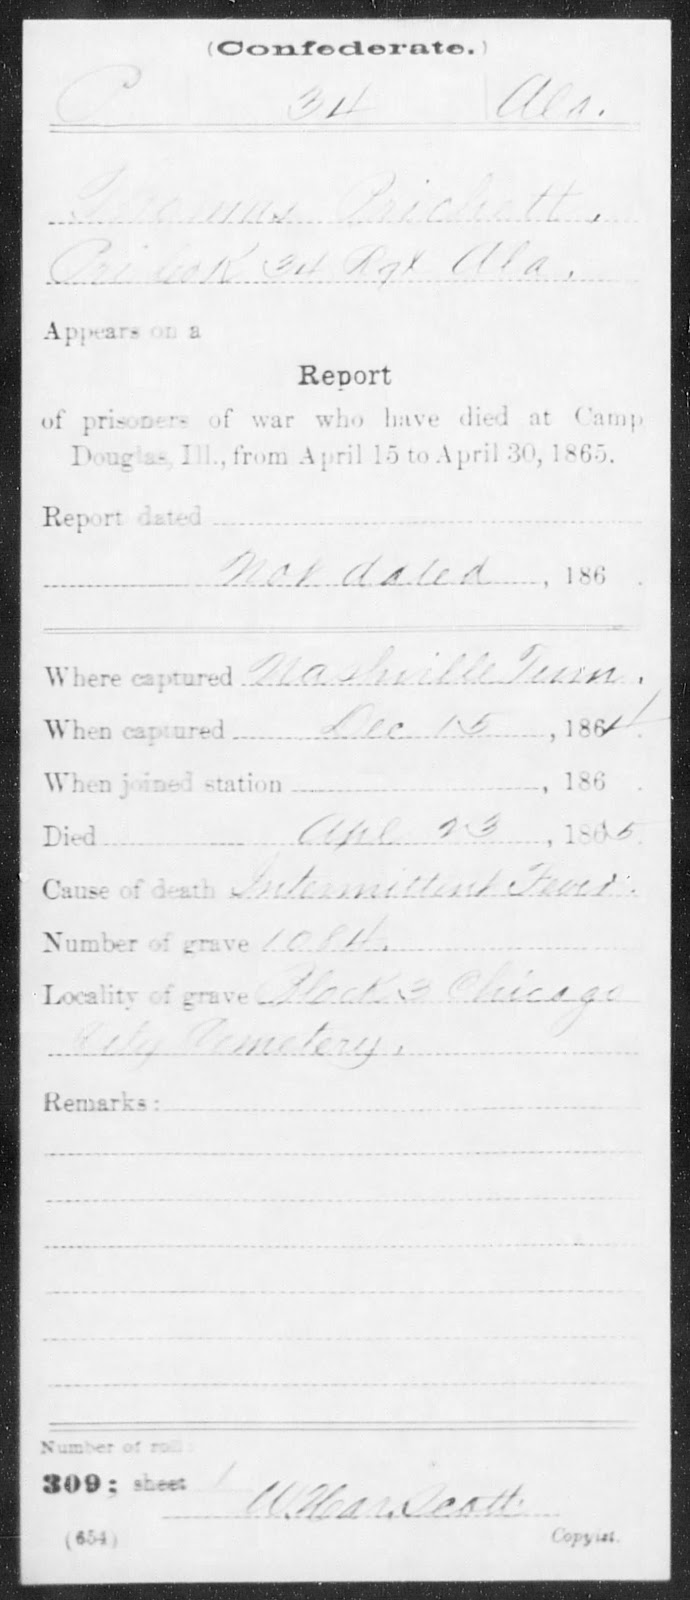 (Confederate.)
P 34 Ala.
Thomas Prichett.
Pri Co K 34 Rgt Ala.
Appears on a
Report
of prisoners of war who have died at Camp
Douglas, Ill., from April 15 to April 30, 1865.
Report dated
Not dated, 186 .
Where captured Nashville Tenn.
When captured Dec 15, 1864.
When joined station , 186 .
Died Apl 23, 1865.
Cause of death Intermittent Fever.
Number of grave 1084.
Locality of grave Block 3 Chicago
City Cemetery.
Remarks:
Number of roll:
309; sheet 1
Scott
(654) Copyist.